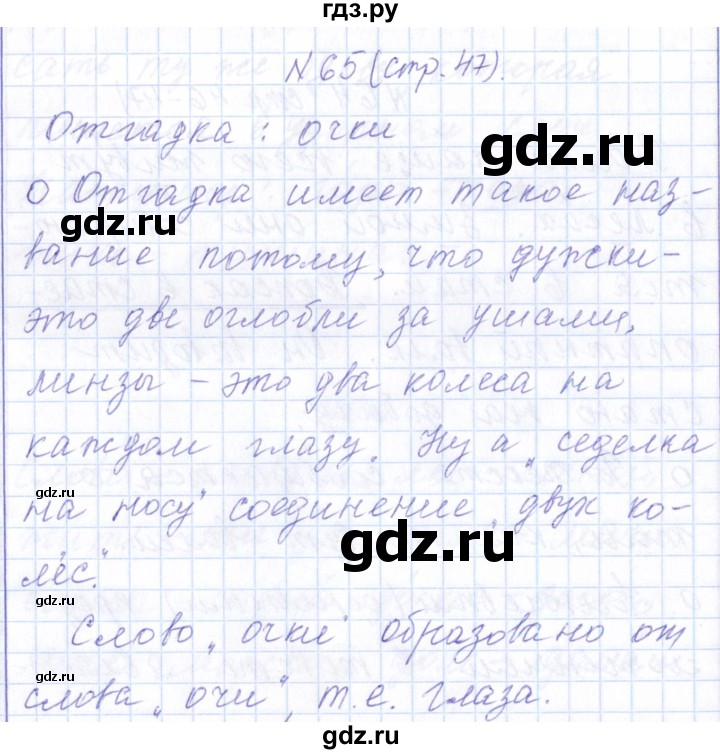 гдз.ру
N 65 (стр. 47).
Отгадка : очки
gdz.ru
О Отгадка имеет такое наз-
gdz.ru
вание потому, что дужки -
это две оглобли за ушами,
линзы - это два колеса на
каждом глазу. Ну а „седелка
gdz.ru
на носу" соединение „двух ко-
gdz.ru
лёс".
gdz.ru
Слово „очки" образовано от
слова „очи", т.е. глаза.
gdz.ru
gdz.ru